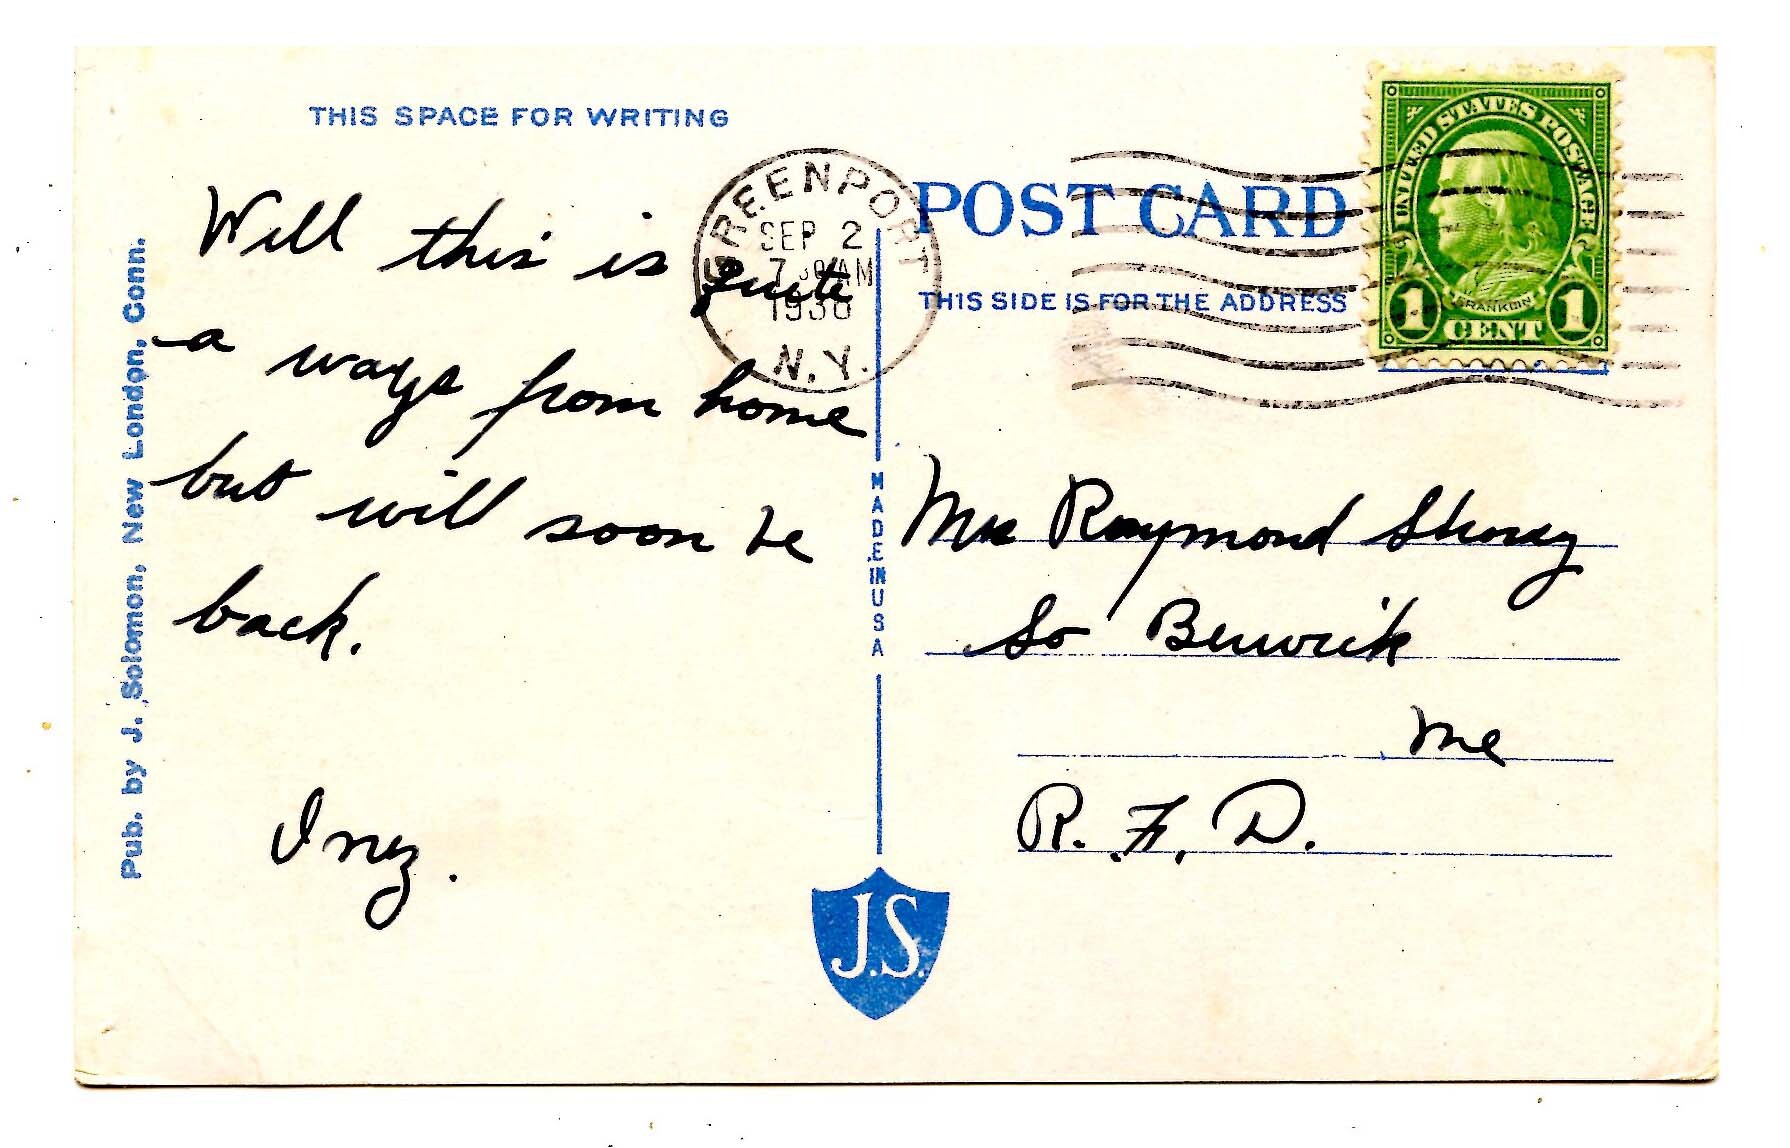 THIS SPACE FOR WRITING
Well this is quite
a ways from home
but will soon be
back.
Inez.
Pub. by J. Solomon, New London, Conn.
GREENPORT
SEP 2
7 30 AM
1936
N.Y.
POST CARD
THIS SIDE IS FOR THE ADDRESS
UNITED STATES POSTAGE
FRANKLIN
1 CENT 1
MADE IN USA
Mrs Raymond Shorey
So Berwick
Me
R.F.D.
J.S.